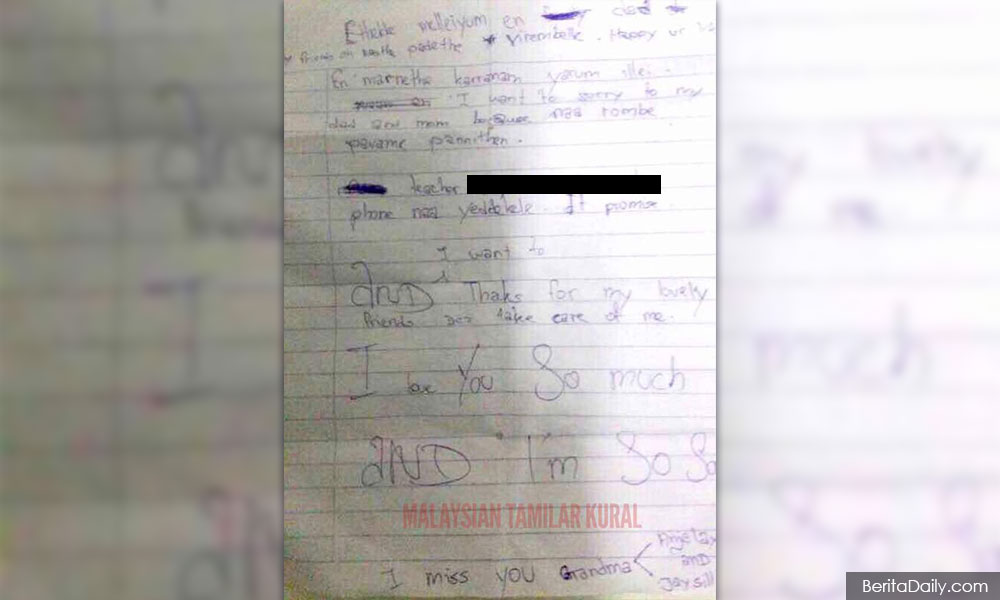 velleiyum en dad
padethe virembelle. Happy ur
En marnethe karranam yarum ille.
I want to sorry to my
dad and mom because naa rombe
pavame pannithen.
teacher
phone naa yeddekele. It promse.
I want to
AND Thaks for my lovely
friends Der take care of me.
I love You So much
AND I'm So So
MALAYSIAN TAMILAR KURAL
I miss YOU Grandma
AND
BeritaDaily.com